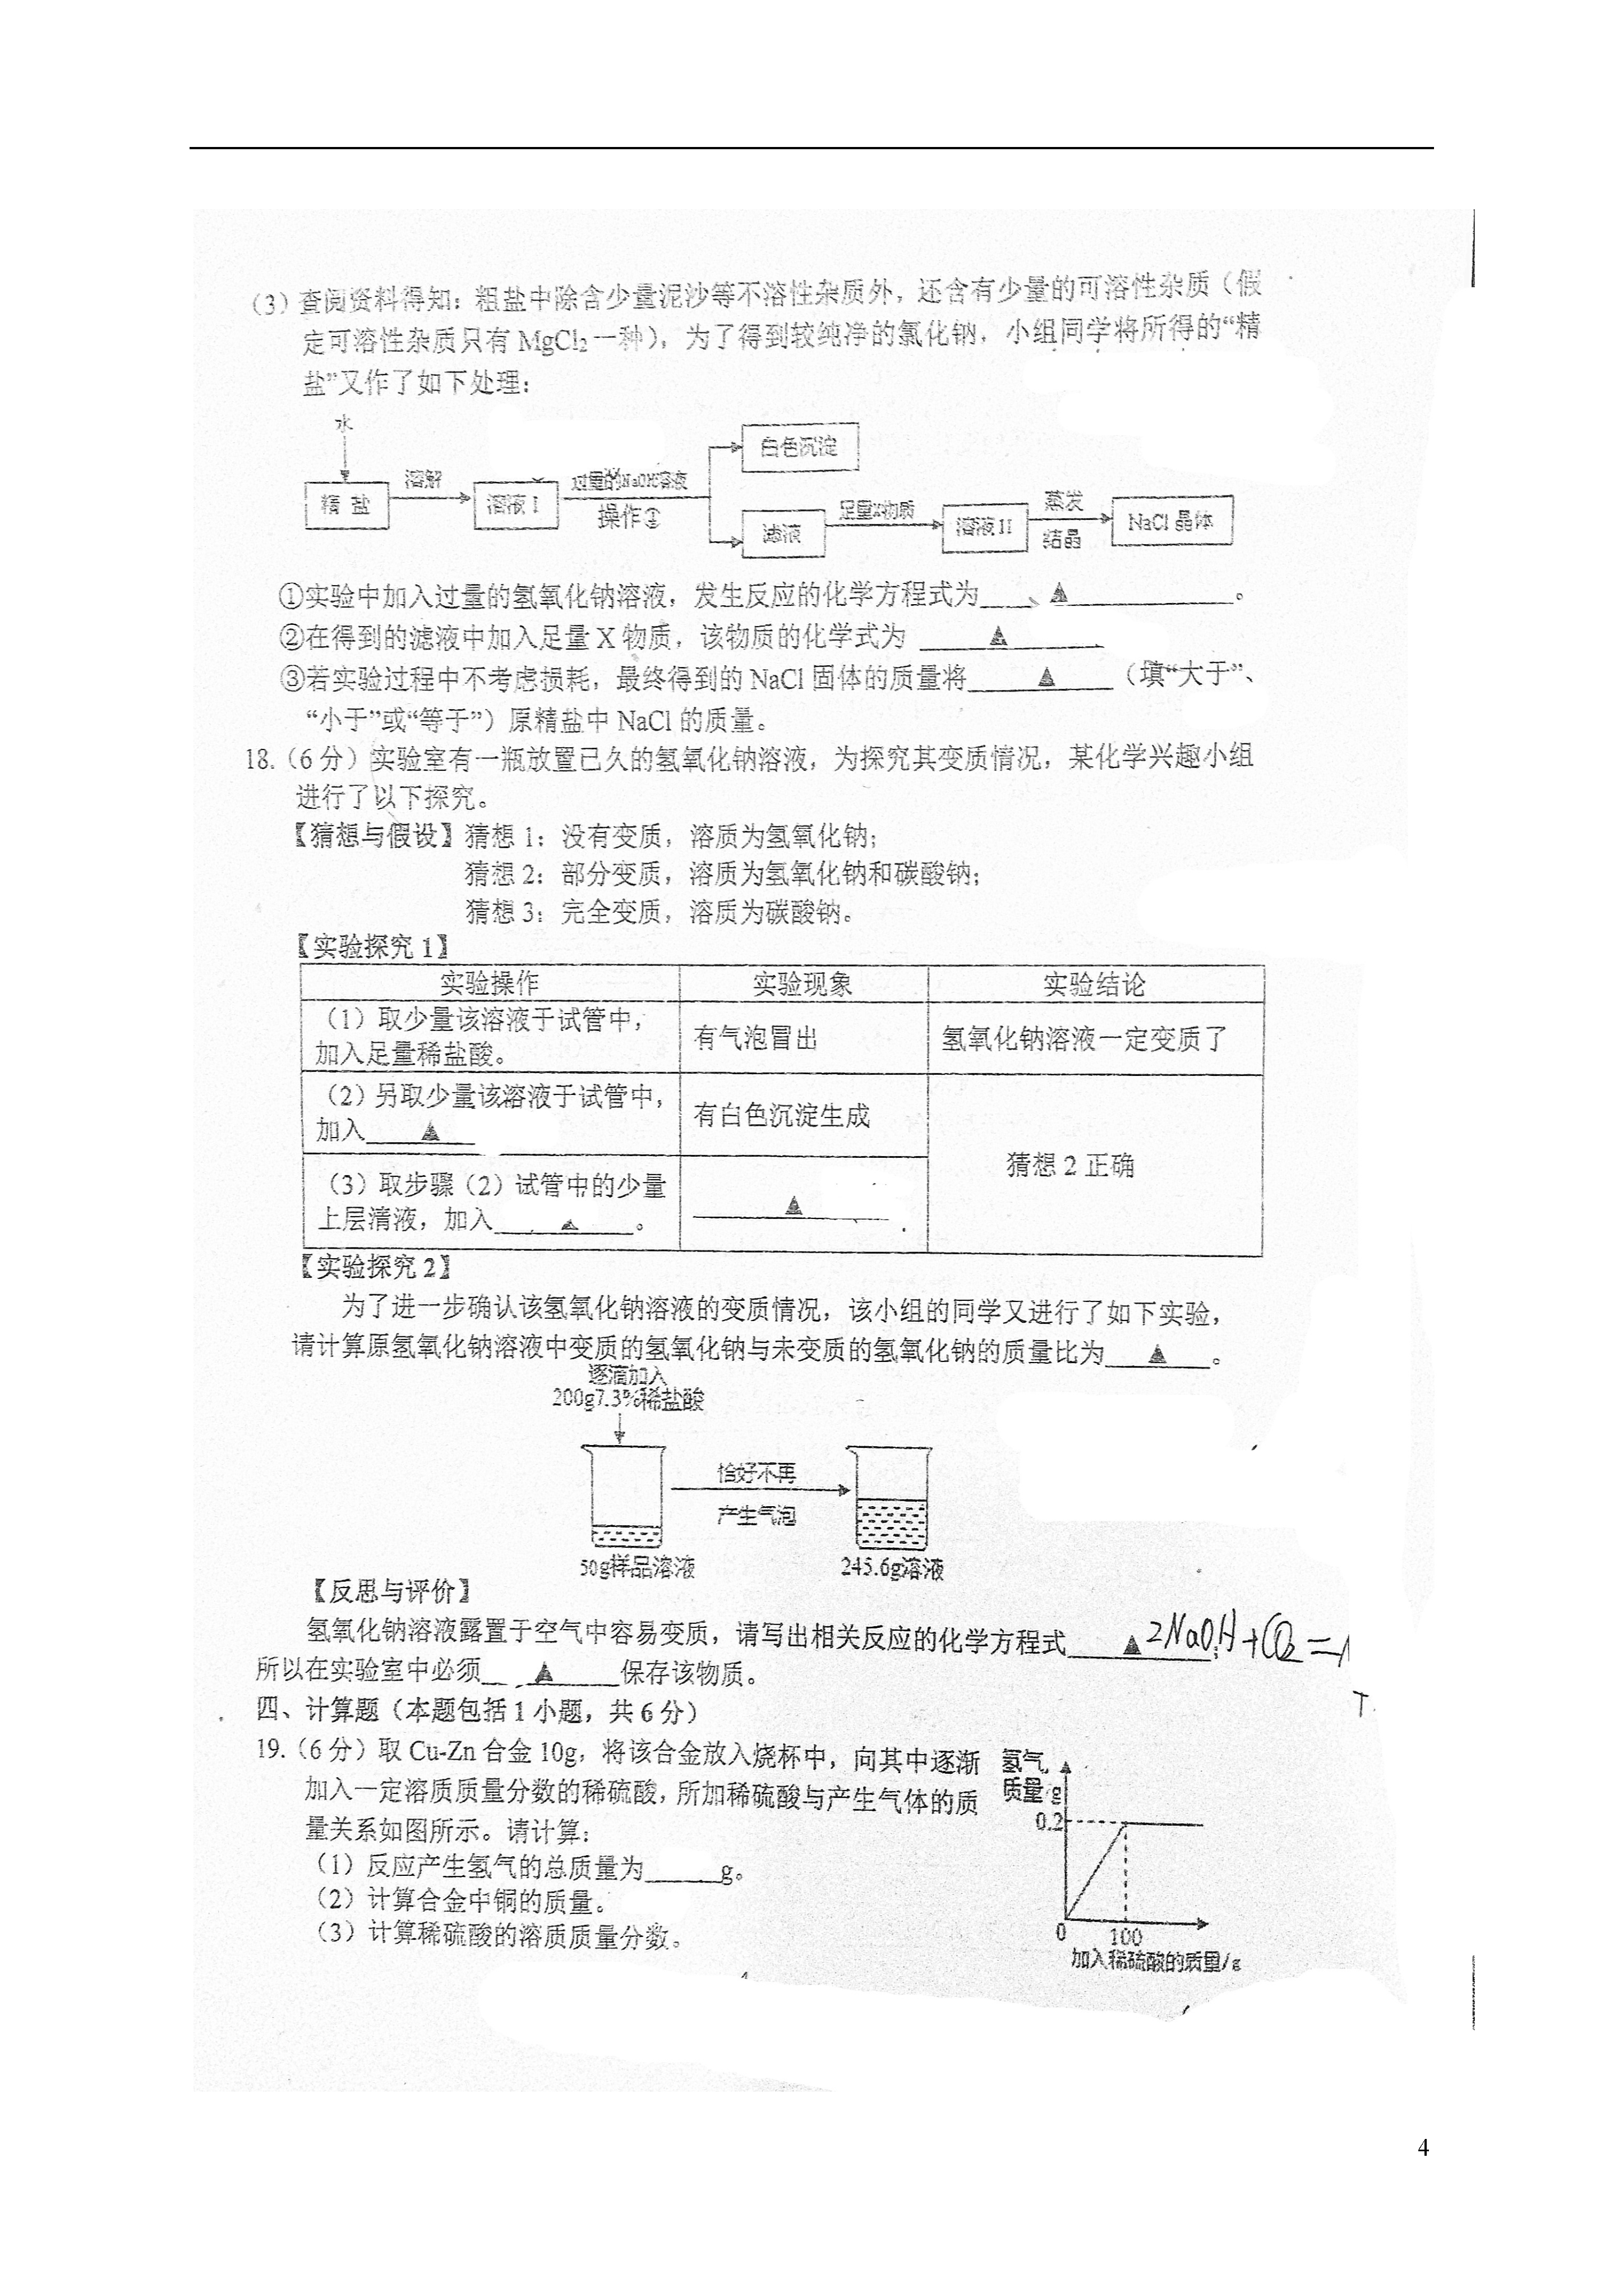 （3）查阅资料得知：粗盐中除含少量泥沙等不溶性杂质外，还含有少量的可溶性杂质（假
定可溶性杂质只有 MgCl₂ 一种），为了得到较纯净的氯化钠，小组同学将所得的“精
盐”又作了如下处理：
水
精 盐
溶解
溶液 I
过量的NaOH溶液
操作①
白色沉淀
滤液
足量X物质
溶液II
蒸发
结晶
NaCl 晶体
①实验中加入过量的氢氧化钠溶液，发生反应的化学方程式为____▲____________。
②在得到的滤液中加入足量 X 物质，该物质的化学式为 ____▲______
③若实验过程中不考虑损耗，最终得到的 NaCl 固体的质量将____▲____（填“大于”、
“小于”或“等于”）原精盐中 NaCl 的质量。
18.（6 分）实验室有一瓶放置已久的氢氧化钠溶液，为探究其变质情况，某化学兴趣小组
进行了以下探究。
【猜想与假设】猜想 1：没有变质，溶质为氢氧化钠；
猜想 2：部分变质，溶质为氢氧化钠和碳酸钠；
猜想 3：完全变质，溶质为碳酸钠。
【实验探究 1】
实验操作 实验现象 实验结论
（1）取少量该溶液于试管中，
加入足量稀盐酸。
有气泡冒出
氢氧化钠溶液一定变质了
（2）另取少量该溶液于试管中，
加入____▲___
有白色沉淀生成
猜想 2 正确
（3）取步骤（2）试管中的少量
上层清液，加入____▲____。
______▲______
【实验探究 2】
为了进一步确认该氢氧化钠溶液的变质情况，该小组的同学又进行了如下实验，
请计算原氢氧化钠溶液中变质的氢氧化钠与未变质的氢氧化钠的质量比为___▲___。
逐滴加入
200g7.3%稀盐酸
恰好不再
产生气泡
50g样品溶液
245.6g溶液
【反思与评价】
氢氧化钠溶液露置于空气中容易变质，请写出相关反应的化学方程式____▲ 2NaOH+CO₂=
所以在实验室中必须____▲_____保存该物质。
四、计算题（本题包括 1 小题，共 6 分）
19.（6 分）取 Cu-Zn 合金 10g，将该合金放入烧杯中，向其中逐渐
加入一定溶质质量分数的稀硫酸，所加稀硫酸与产生气体的质
量关系如图所示。请计算：
（1）反应产生氢气的总质量为______g。
（2）计算合金中铜的质量。
（3）计算稀硫酸的溶质质量分数。
氢气
质量/g
0.2
0
100
加入稀硫酸的质量/g
4